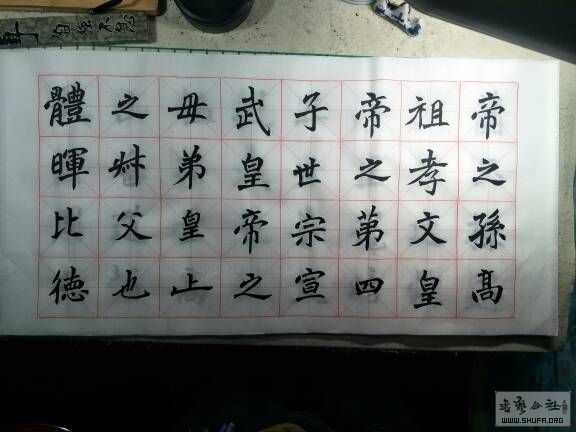 自強不息
帝之孫高
祖孝文皇
帝之第四
子世宗宣
武皇帝之
母弟皇上
之叔父也
體暉比德
書藝公社
WWW.SHUFA.ORG